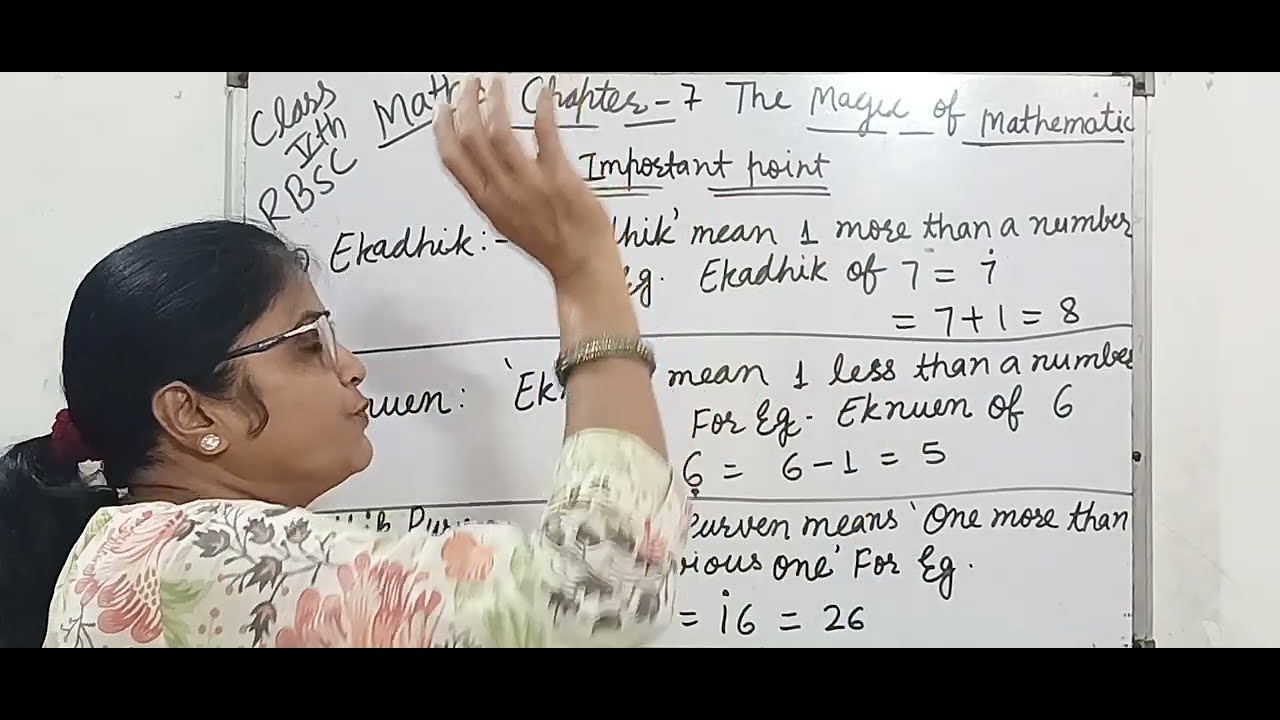 Class
Vth
RBSC
Chapter-7 The Magic of Mathematic
Important point
Ekadhik:- mean 1 more than a number
Eg. Ekadhik of 7 = 7̇
= 7+1 = 8
mean 1 less than a number
For Eg. Eknuen of 6
6̣ = 6-1 = 5
means 'One more than
one' For Eg.
= 1̇6 = 26